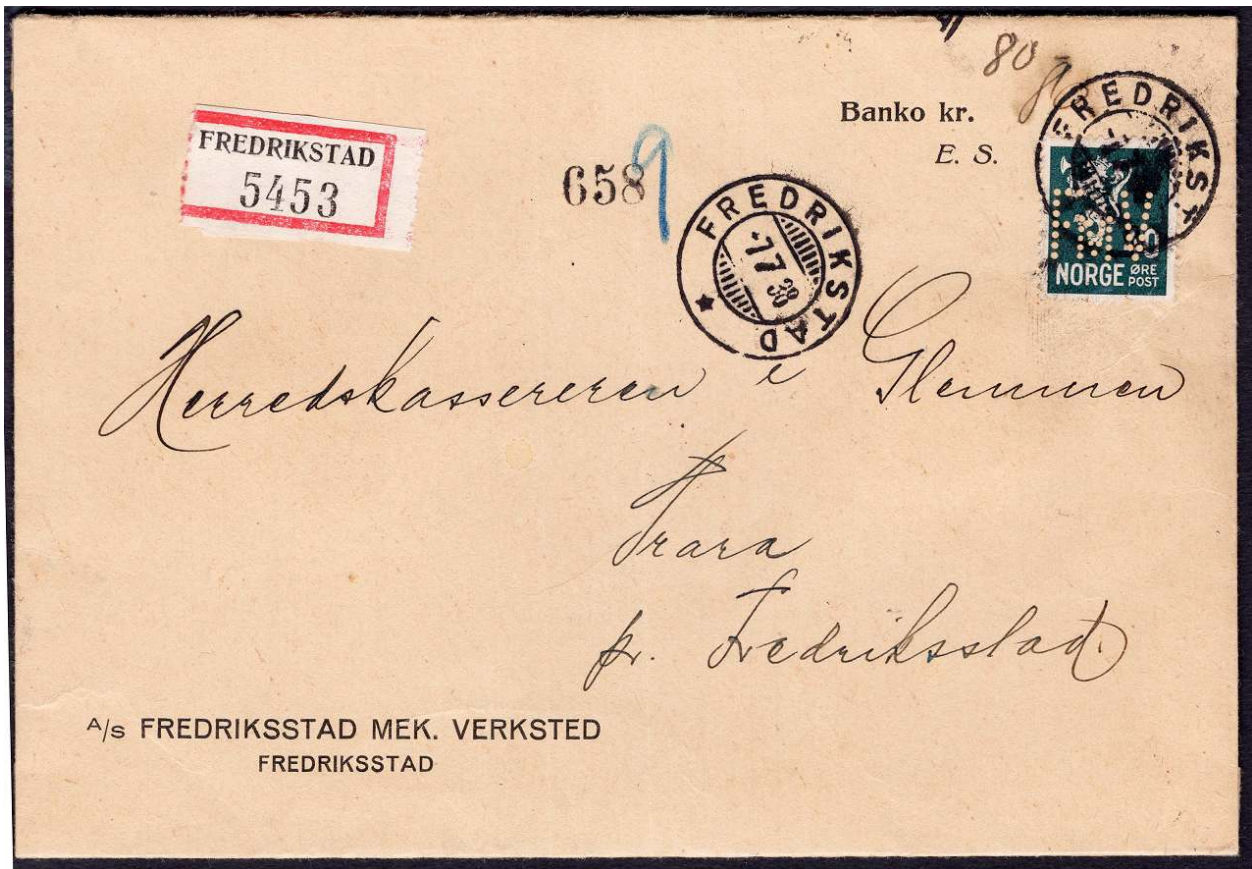 80 g
Banko kr.
E. S.
FREDRIKSTAD
5453
658
9
FREDRIKSTAD
-7 7 30
FREDRIKS
NORGE ØRE POST
Herredskassereren i Glemmen
Trara
pr. Fredriksstad.
A/s FREDRIKSSTAD MEK. VERKSTED
FREDRIKSSTAD